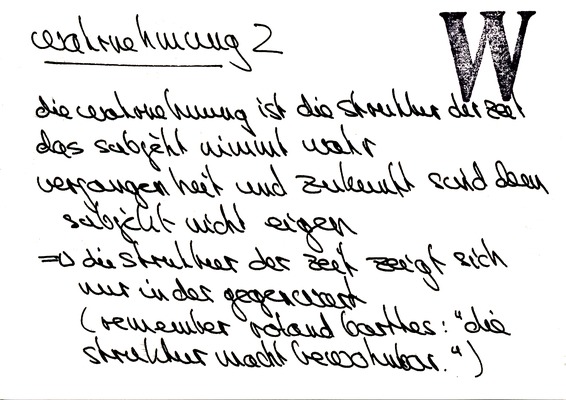 wahrnehmung 2
W
die wahrnehmung ist die struktur der zeit
das subjekt nimmt wahr
vergangenheit und zukunft sind dem
subjekt nicht eigen
=> die struktur der zeit zeigt sich
nur in der gegenwart
(remember roland barthes: "die
struktur macht bewohnbar.")